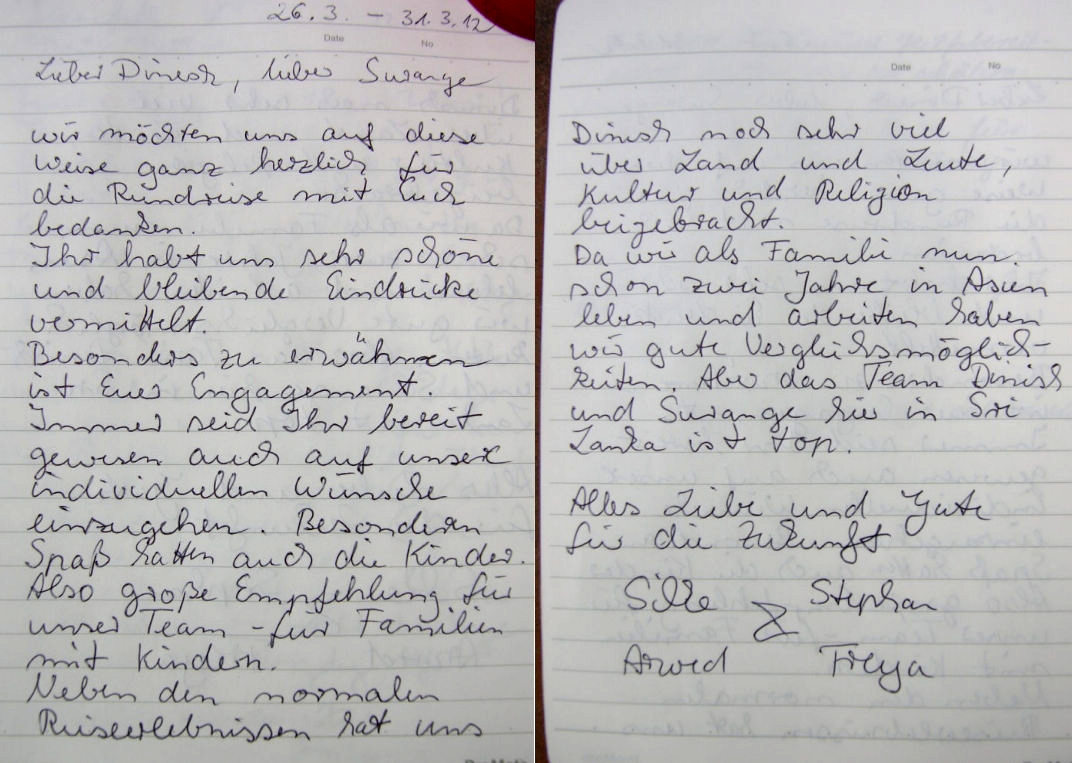 26.3. – 31.3.12
Date No
Lieber Dinesh, lieber Surange
wir möchten uns auf diese
Weise ganz herzlich für
die Rundreise mit Euch
bedanken.
Ihr habt uns sehr schöne
und bleibende Eindrücke
vermittelt.
Besonders zu erwähnen
ist Euer Engagement.
Immer seid Ihr bereit
gewesen auch auf unsere
individuellen Wünsche
einzugehen. Besonderen
Spaß hatten auch die Kinder.
Also große Empfehlung für
unser Team – für Familien
mit Kindern.
Neben den normalen
Reiseerlebnissen hat uns
Date No
Dinesh noch sehr viel
über Land und Leute,
Kultur und Religion
beigebracht.
Da wir als Familie nun
schon zwei Jahre in Asien
leben und arbeiten haben
wir gute Vergleichsmöglich-
keiten. Aber das Team Dinish
und Surange hier in Sri
Lanka ist top.
Alles Liebe und Gute
für die Zukunft
Silke & Stephan
Arwed Freya